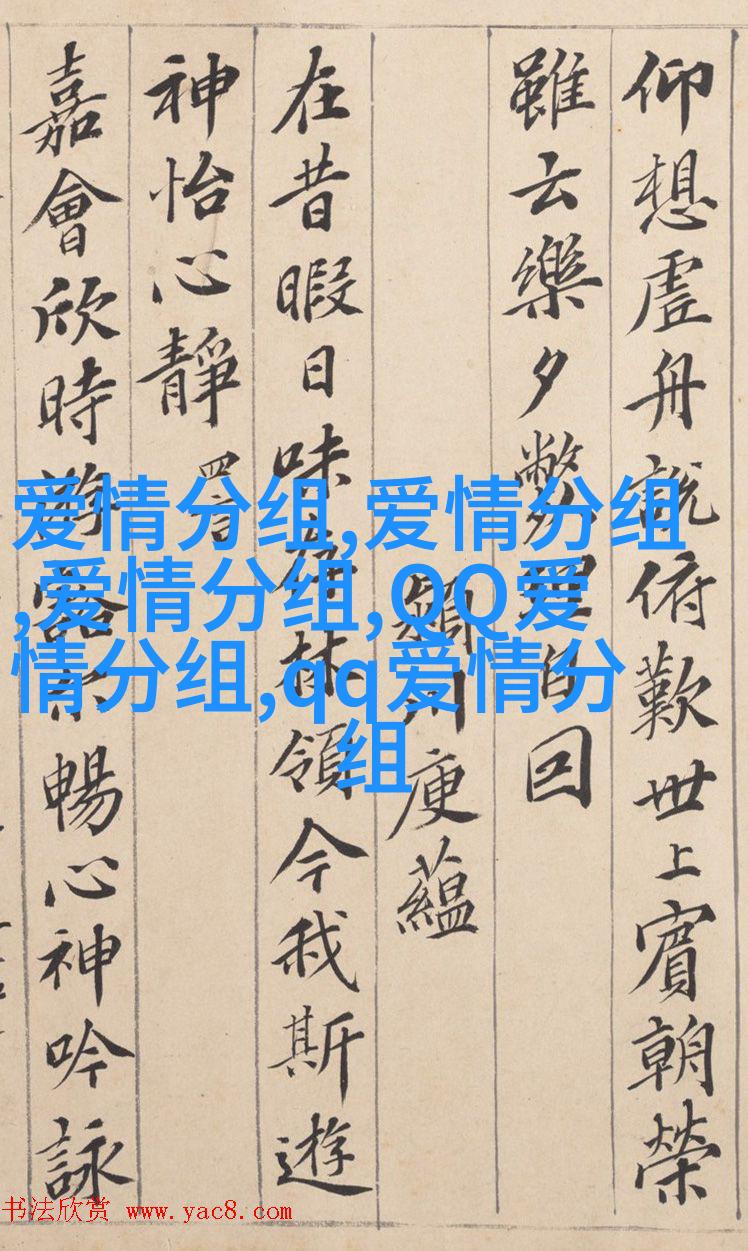 仰想虛舟說俯歎世上賓朝榮
雖云樂夕弊理自回
潁川庾蘊
在昔暇日味存林領今我斯遊
神怡心靜
嘉會欣時游豁尒暢心神吟詠
爱情分组,爱情分组
,爱情分组,QQ爱
情分组,qq爱情分
组
书法欣赏 www.yac8.com